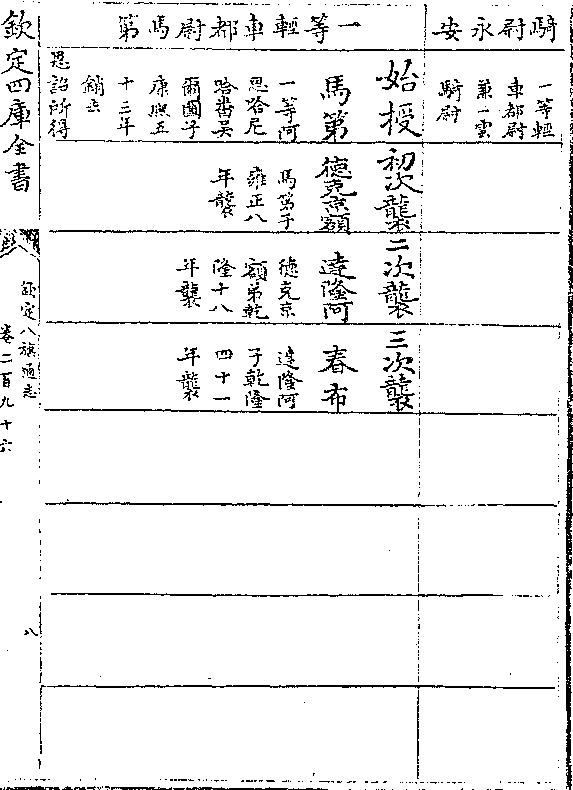 騎尉永安
一等輕
車都尉
兼一雲
騎尉
一等輕車都尉馬第
始授
馬第
一等阿
思哈尼
哈番吴
爾圖子
康熙五
十三年
銷去
恩詔所得
初次襲
德克京額
馬第子
雍正八
年襲
二次襲
達隆阿
德克京
額弟乾
隆十八
年襲
三次襲
春布
達隆阿
子乾隆
四十一
年襲
欽定四庫全書
欽定八旗通志
卷二百九十六
八